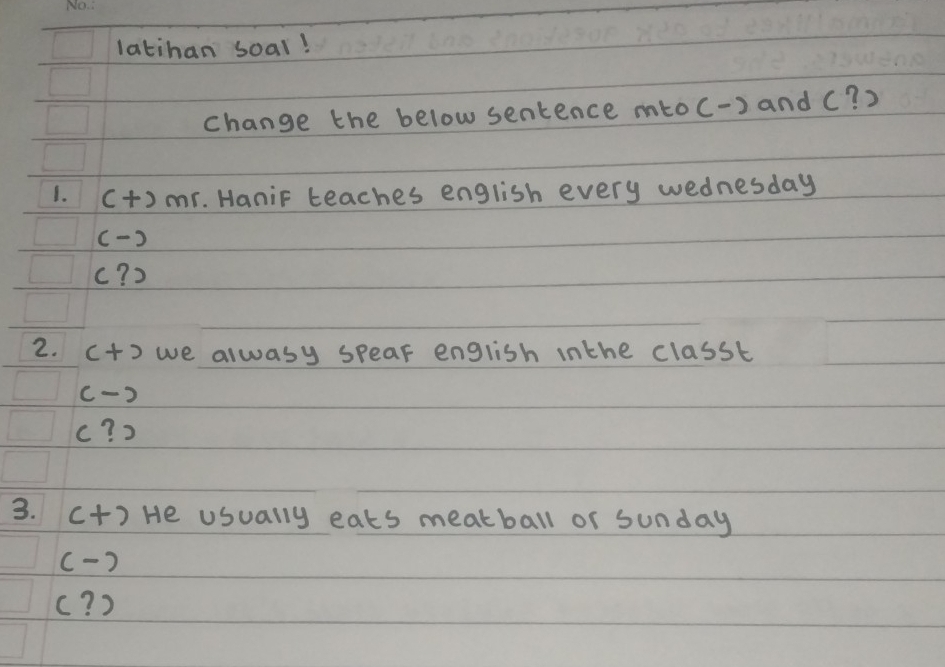 No.:
latihan soal!
change the below sentence into (-) and (?)
1. (+) mr. Hanif teaches english every wednesday
(-)
(?)
2. (+) we alwasy speaf english inthe classt
(-)
(?)
3. (+) He usually eats meatball or sunday
(-)
(?)